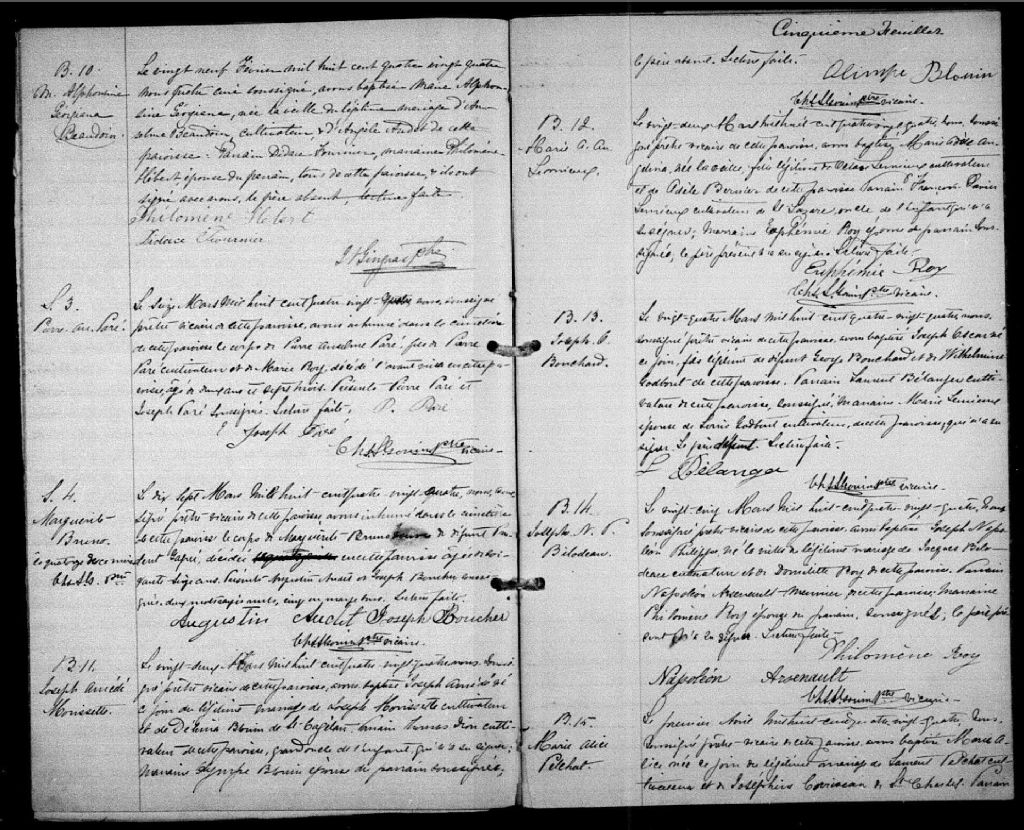 B. 10.
M. Alphonsine
Georgiana
Beaudoin.
Le vingt neuf Février mil huit cent quatre vingt quatre
nous prêtre curé soussigné, avons baptisé Marie Alphon-
sine Georgiana, née la veille du légitime mariage d'An-
selme Beaudoin, cultivateur & d'Angèle Audet de cette
paroisse. Parrain Didace Fournier, marraine Philomène
Hébert, épouse du parrain, tous de cette paroisse, & ils ont
signé avec nous, le père absent. Lecture faite.
Philomène Hebert
Didace Fournier
S. 3.
Pierre An. Paré.
Le seize Mars mil huit cent quatre vingt-quatre nous, soussigné
prêtre vicaire de cette paroisse, avons inhumé dans le cimetière
de cette paroisse le corps de Pierre Anselme Paré, fils de Pierre
Paré cultivateur et de Marie Roy, décédé l'avant veille en cette pa-
roisse, âgé de deux ans et sept mois. Présents Pierre Paré et
Joseph Paré soussignés. Lecture faite. P. Paré
Joseph Paré
ptre vicaire.
S. 4.
Marguerite
Bruno.
Le dix sept Mars mil huit cent quatre-vingt-quatre, nous, sous-
signé prêtre vicaire de cette paroisse, avons inhumé dans le cimetière
de cette paroisse le corps de Marguerite Bruno de défunt
décédée en cette paroisse âgée de
ans. Présents Augustin Audet et Joseph Boucher sous-
signés. Lecture faite.
Augustin Audet Joseph Boucher
ptre vicaire.
B. 11.
Joseph Amédé
Morissette.
Le vingt-deux Mars mil huit cent quatre-vingt quatre nous, sous-
signé prêtre vicaire de cette paroisse, avons baptisé Joseph Amédé né
ce jour du légitime mariage de Joseph Morissette cultivateur
et de Blouin de St Parrain Dion culti-
vateur de cette paroisse, grand oncle de l'enfant, qui n'a su signer;
marraine Olympe Blouin épouse du parrain soussignée,
Cinquième Feuillet
le père absent. Lecture faite.
Olimpe Blouin
ptre vicaire.
B. 12.
Marie A. An.
Lemieux.
Le vingt-deux Mars mil huit cent quatre vingt quatre, nous, soussi-
gné prêtre vicaire de cette paroisse, avons baptisé Marie Adèle An-
gelina, née la veille, fille légitime de Lemieux cultivateur
et de Adèle Bernier de cette paroisse. Parrain François
Lemieux cultivateur de St Lazare, oncle de l'enfant qui n'a
su signer; marraine Euphémie Roy épouse du parrain sous-
signée; le père présent n'a su signer. Lecture faite.
Euphémie Roy
ptre vicaire.
B. 13.
Joseph O.
Bouchard.
Le vingt-quatre Mars mil huit cent quatre-vingt quatre, nous,
soussigné prêtre vicaire de cette paroisse, avons baptisé Joseph Oscar né
ce jour, fils légitime de défunt Bouchard et de Wilhelmine
Godbout de cette paroisse. Parrain Laurent Bélanger culti-
vateur de cette paroisse, soussigné; marraine Marie Lemieux
épouse de Louis Godbout cultivateur, de cette paroisse, qui n'a su
signer. Le père défunt. Lecture faite.
L. Bélanger
ptre vicaire.
B. 14.
Joseph N. P.
Bilodeau.
Le vingt-cinq Mars mil huit cent quatre-vingt quatre, nous,
soussigné prêtre vicaire de cette paroisse, avons baptisé Joseph Napo-
léon Philippe né la veille du légitime mariage de Jacques Bilo-
deau cultivateur et de Domitille Roy de cette paroisse. Parrain
Napoléon Arsenault meunier de cette paroisse; marraine
Philomène Roy épouse du parrain, soussignés, le père pré-
sent n'a su signer. Lecture faite.
Philomène Roy
Napoléon Arsenault
ptre vicaire.
B. 15.
Marie Alice
Pelchat.
Le premier Avril mil huit cent quatre-vingt quatre, nous,
soussigné prêtre vicaire de cette paroisse, avons baptisé Marie A-
lice née ce jour du légitime mariage de Laurent Pelchat cul-
tivateur et de Joséphine de St Charles. Parrain